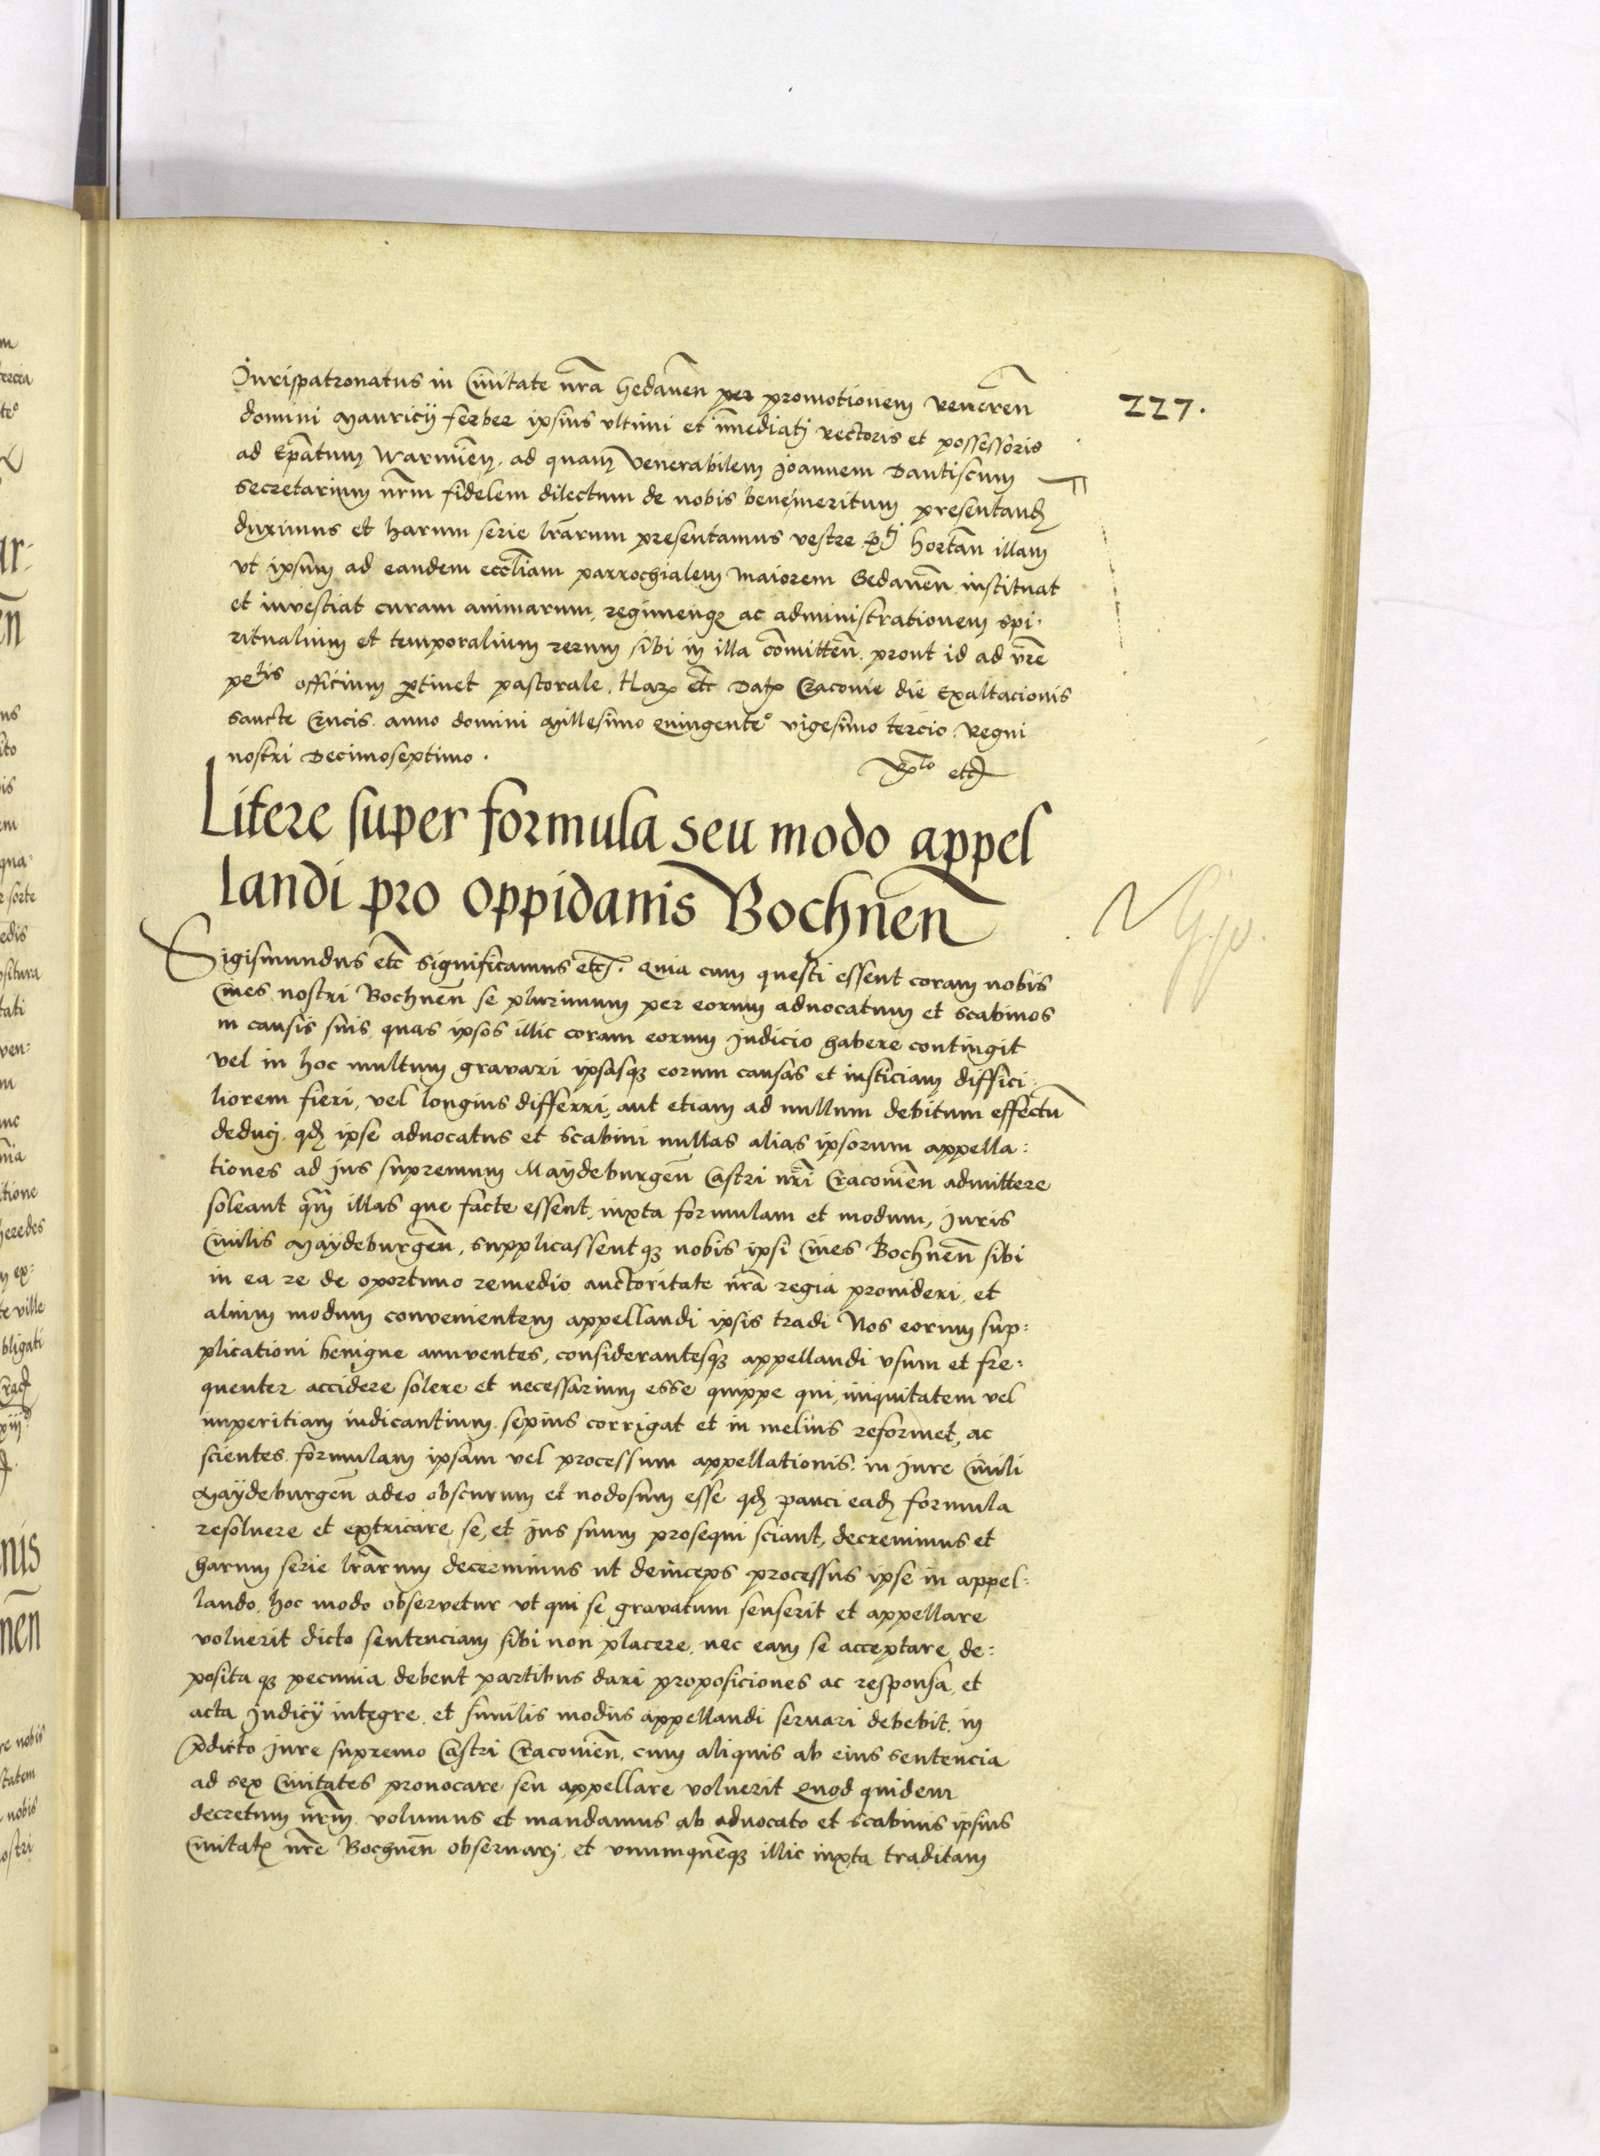 227.
Jurispatronatus in Civitate nrã Gedanen̄ per promotionem Reveren̄
domini Mauricij ferber ipsius ultimi et im̄mediati Rectoris et possessoris
ad Ep̄atum Warmien̄. ad quam Venerabilem Joannem Dantiscum
Secretarium nr̄m fidelem dilectum de nobis benemeritum presentand
duximus et harum serie lr̄arum presentamus vestre hortan̄ illam
Vt ipsum ad eandem eccl̄iam parrochialem maiorem Gedanen̄ instituat
et investiat curam animarum, regimenq3 ac administrationem spi-
ritualium et temporalium rerum sibi in illa com̄itten̄. prout id ad vr̄e
p̄tis officium ptinet pastorale. Harꝝ etc̄ Datꝝ Cracovie die Exaltacionis
Sancte Crucis. anno domini Millesimo Quingenteᵒ vigesimo tercio Regni
nostri Decimoseptimo.
etc
Litere super formula seu modo appel
landi pro oppidanis Bochnen̄
Sigismundus etc̄ Significamus etc. Quia cum questi essent coram nobis
Cives nostri Bochnen̄ se plurimum per eorum advocatum et scabinos
in causis suis quas ipsos illic coram eorum Judicio habere contingit
vel in hoc multum gravari ipsasq3 eorum causas et iusticiam diffici:
liorem fieri, vel longius differri, aut etiam ad nullum debitum effectū
deduci. qd ipse advocatus et scabini nullas alias ipsorum appella:
tiones ad Jus supremum Maydeburgen̄ Castri nr̄i Cracovien̄ admittere
soleant qm̄ illas que facte essent, iuxta formulam et modum, Juris
Civilis Maydeburgen̄, supplicassentq3 nobis ipsi Cives Bochnen̄ sibi
in ea re de oportuno remedio auctoritate nr̄a regia provideri, et
alium modum convenientem appellandi ipsis tradi Nos eorum sup:
plicationi benigne annuentes, considerantesq3 appellandi usum et fre:
quenter accidere solere et necessarium esse quippe qui, iniquitatem vel
imperitiam iudicantium sepius corrigat et in melius reformet, ac
scientes formulam ipsam vel processum appellationis. in Jure Civili
Maydeburgen̄ adeo obscurum et nodosum esse qd pauci ead formula
resolvere et extricare se, et Jus suum prosequi sciant, decrevimus et
harum serie lr̄arum decernimus ut deinceps processus ipse in appel:
lando. hoc modo observetur ut qui se gravatum senserit et appellare
voluerit dicto sentenciam sibi non placere, nec eam se acceptare, de:
posita q3 pecunia debent partibus dari proposiciones ac responsa, et
acta Judicij integre, et similis modus appellandi servari debebit. in
p̄dicto Jure supremo Castri Cracovien̄. cum aliquis ab eius sentencia
ad sex Civitates provocare seu appellare voluerit Quod quidem
decretum nr̄m volumus et mandamus ab advocato et scabinis ipsius
Civitatꝝ nr̄e Bochnen̄ observari, et unumquemq3 illic iuxta traditam